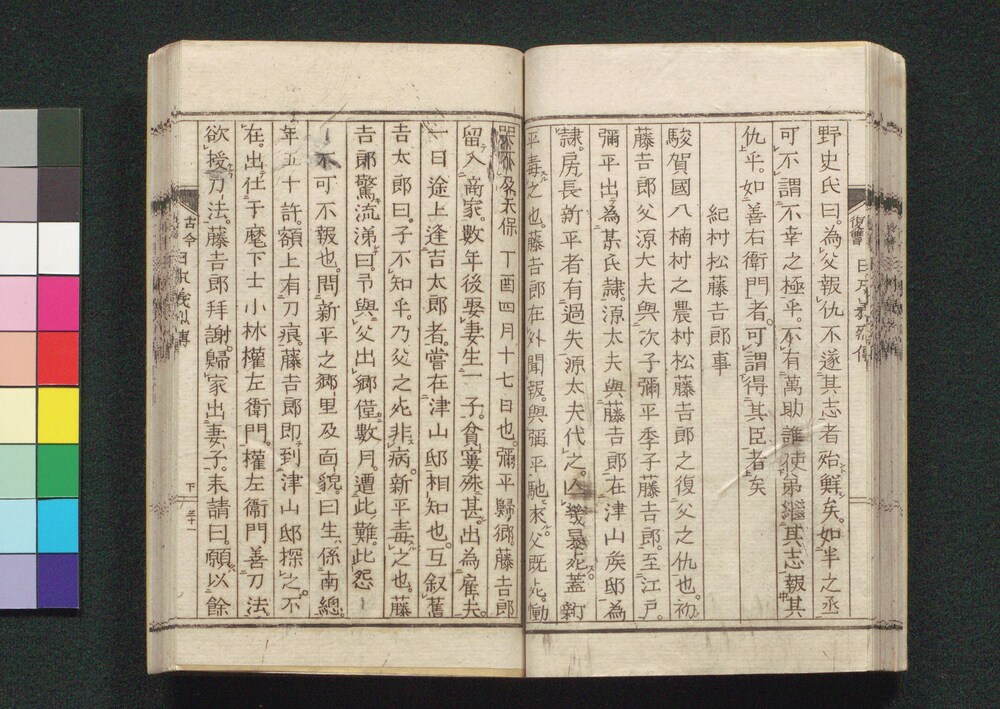 野史氏曰。為父報仇不遂其志者殆鮮矣。如半之丞
可不謂不幸之極乎。不有萬助誰使弟繼其志報其
仇乎。如善右衛門者。可謂得其臣者矣
紀村松藤吉郎事
駿賀國八楠村之農村松藤吉郎之復父之仇也。初
藤吉郎父源大夫與次子彌平季子藤吉郎。至江戸。
彌平出為某氏隷。源太夫與藤吉郎在津山矦邸為
隷。房長新平者有過失源太夫代之。人幾暴死。蓋新
平毒之也。藤吉郎在外聞報。與彌平馳來。父既死。慟
哭。天保丁酉四月十七日也。彌平歸鄉藤吉郎
留入商家。數年後娶妻生一子。貧窶殊甚。出為雇夫。
一日途上逢吉太郎者。嘗在津山邸相知也。互叙舊
吉太郎曰。子不知乎。乃父之死非病。新平毒之也。藤
吉郎驚流涕曰。予與父出鄉僅數月。遭此難。此怨
不可不報也。問新平之鄉里及面貌。曰生係南總。
年五十許。額上有刀痕。藤吉郎即到津山邸探之。不
在。出仕于麾下士小林權左衛門。權左衞門善刀法
欲授刀法。藤吉郎拜謝。歸家出妻子。未請曰。願以餘
復讐
古今日本義烈傳
下 三十一